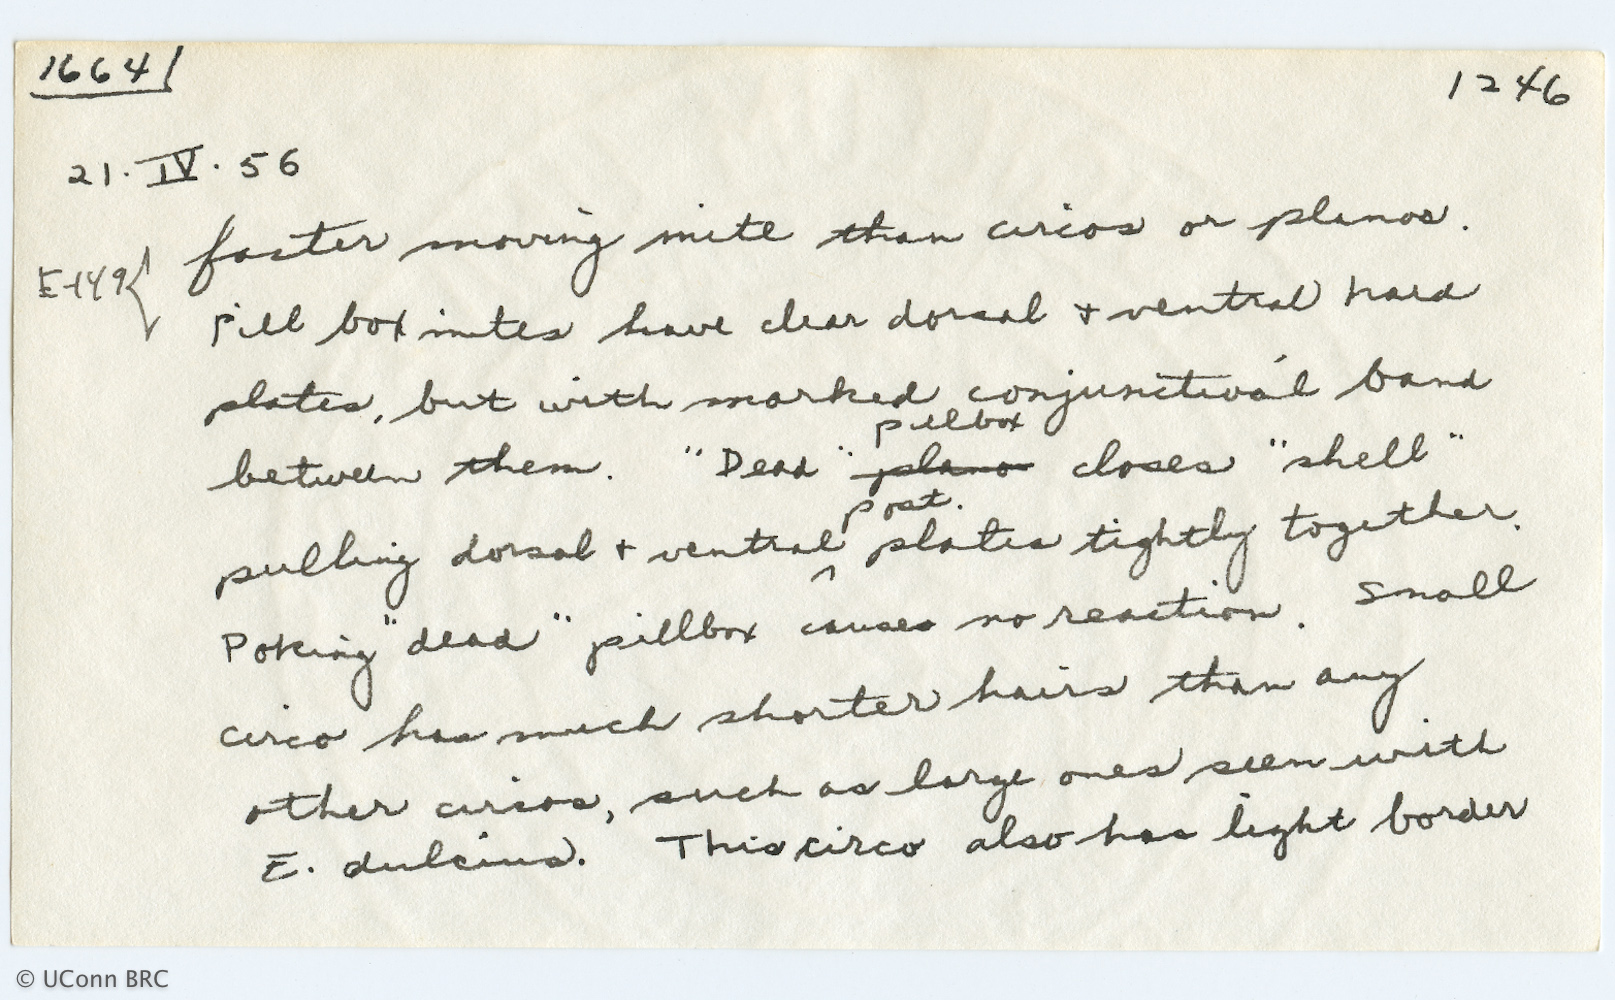 1664
1246
21·IV·56
E-149
faster moving mite than circos or planos.
Pill box mites have clear dorsal + ventral hard
plates, but with marked conjunctival band
pillbox
between them. "Dead" plano closes "shell"
post.
pulling dorsal + ventral ^ plates tightly together.
Poking "dead" pillbox causes no reaction. Small
circo has much shorter hairs than any
other circos, such as large ones seen with
E. dulcius. This circo also has light border
© UConn BRC